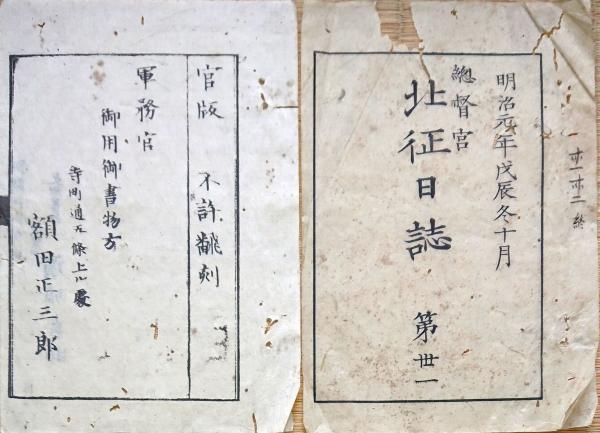 明治元年戊辰冬十月
總督宮
北征日誌
第丗一
官版 不許翻刻
軍務官
御用御書物方
寺町通五條上ル處
額田正三郎